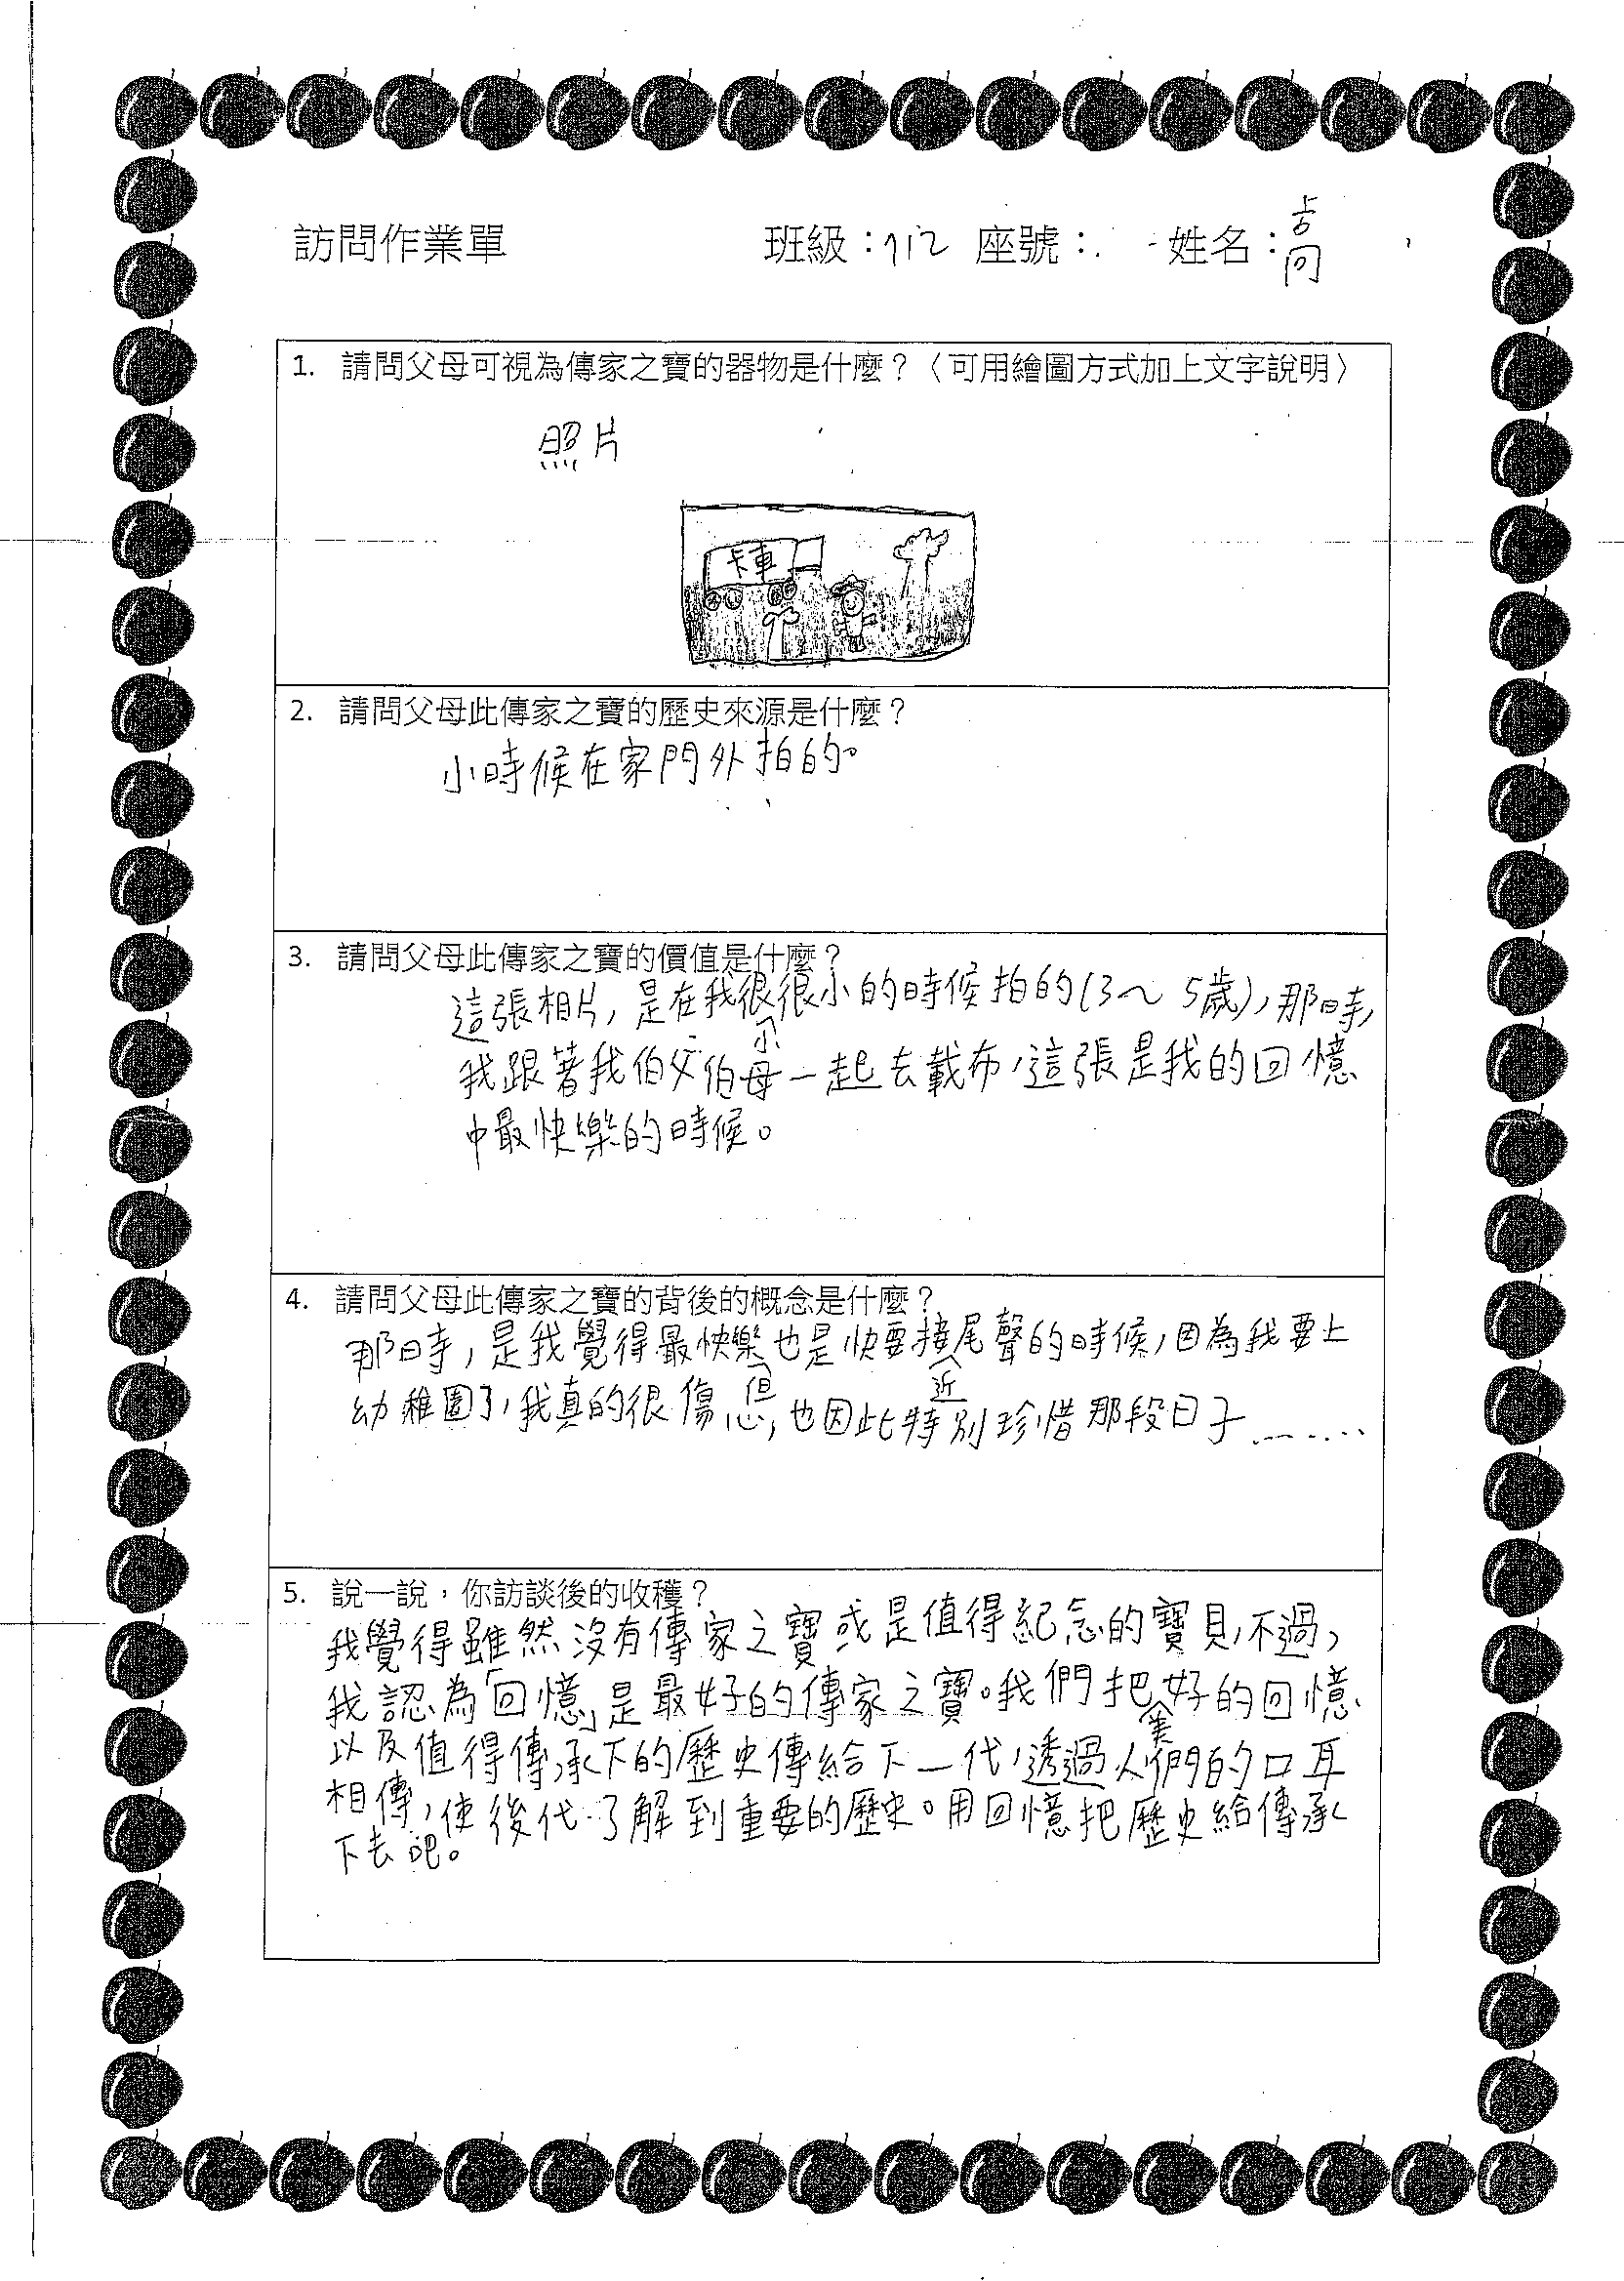 訪問作業單 班級：712 座號： 姓名：高
1. 請問父母可視為傳家之寶的器物是什麼？〈可用繪圖方式加上文字說明〉
照片
卡車
2. 請問父母此傳家之寶的歷史來源是什麼？
小時候在家門外拍的。
3. 請問父母此傳家之寶的價值是什麼？
這張相片，是在我很小很小的時候拍的(3～5歲)，那時，
我跟著我伯父伯母一起去載布，這張是我的回憶
中最快樂的時候。
4. 請問父母此傳家之寶的背後的概念是什麼？
那時，是我覺得最快樂但也是快要接近尾聲的時候，因為我要上
幼稚園了，我真的很傷心，也因此特別珍惜那段日子........
5. 說一說，你訪談後的收穫？
我覺得雖然沒有傳家之寶或是值得紀念的寶貝，不過，
我認為「回憶」是最好的傳家之寶。我們把美好的回憶
以及值得傳承下的歷史傳給下一代，透過人們的口耳
相傳，使後代了解到重要的歷史。用回憶把歷史給傳承
下去吧。